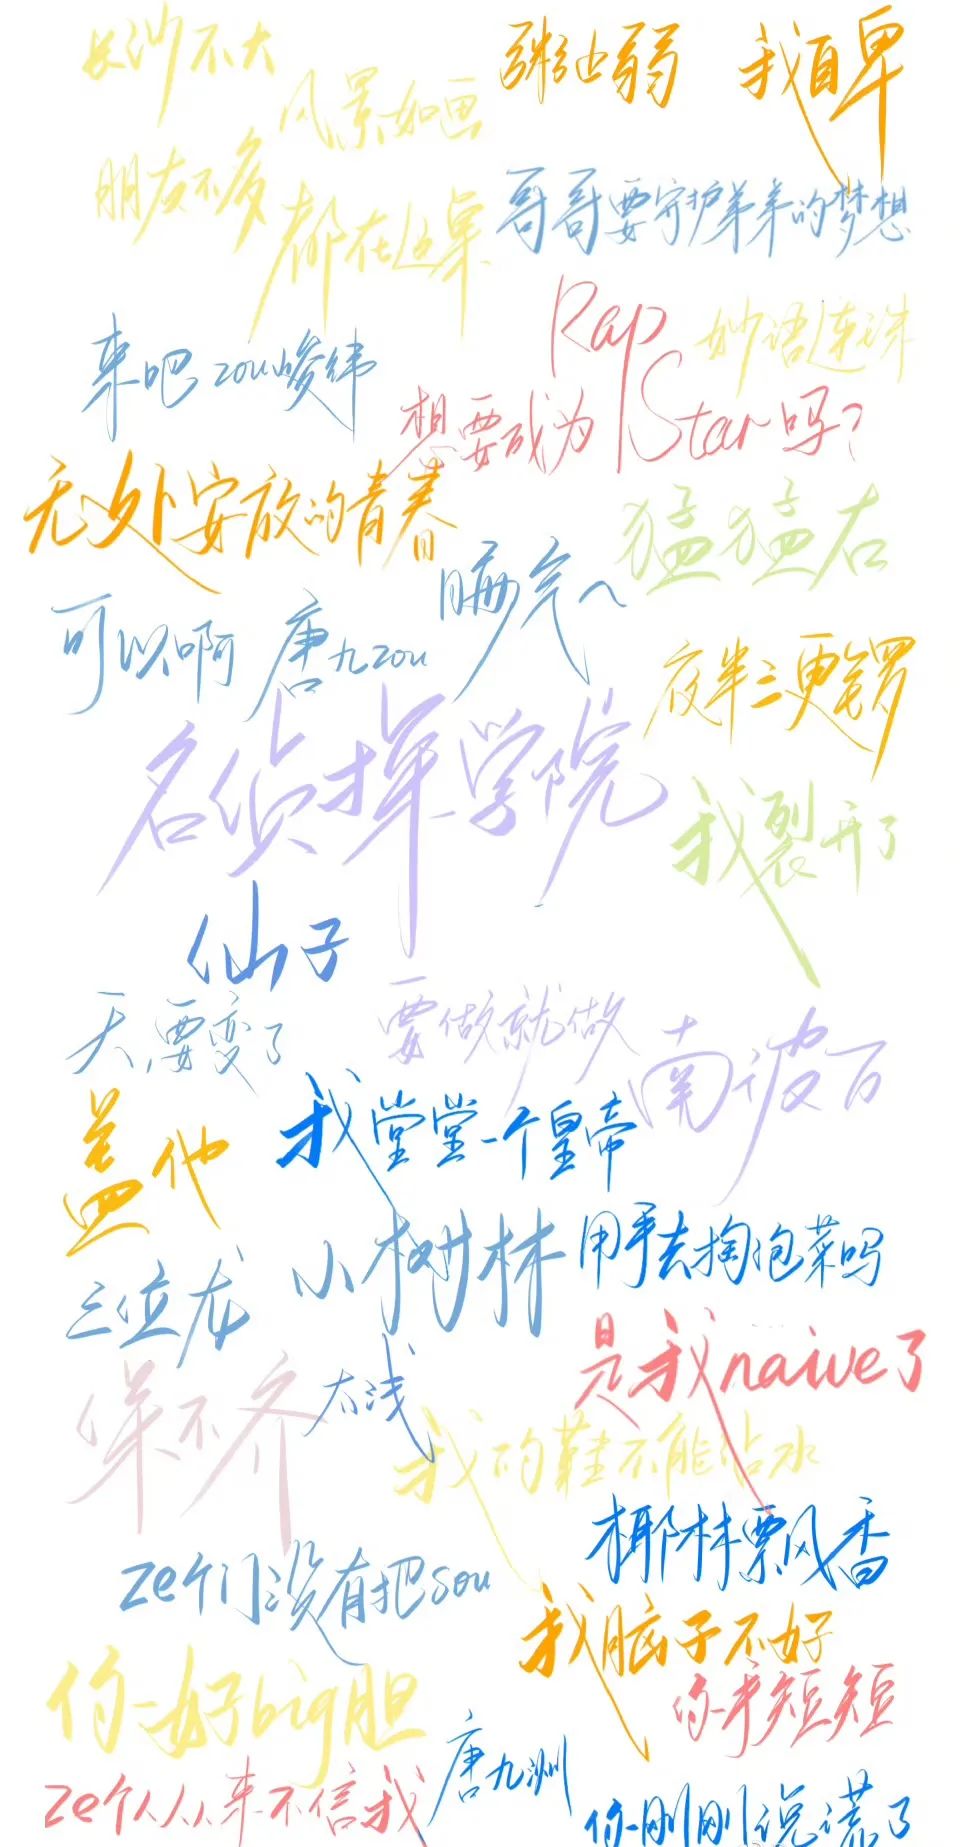 长沙不大
风景如画
朋友不多
都在这桌
粥边弱
我自卑
哥哥要守护弟弟的梦想
来吧zou峻纬
Rap
妙语连珠
想要成为 Star吗?
无处安放的青春
猛猛右
晒气~
可以啊 唐九zou
夜半三更锣
名侦探学院
我裂开了
仙子
天要变了
要做就做
南波万
盖他
我堂堂一个皇帝
小树林
用手去掏泡菜吗
三位龙
是我naive了
保不齐
太浅
我的鞋不能沾水
椰林飘风香
ze个门没有把sou
我脑子不好
你好big胆
你手短短
唐九洲
ze个人从来不信我
你刚刚说谎了